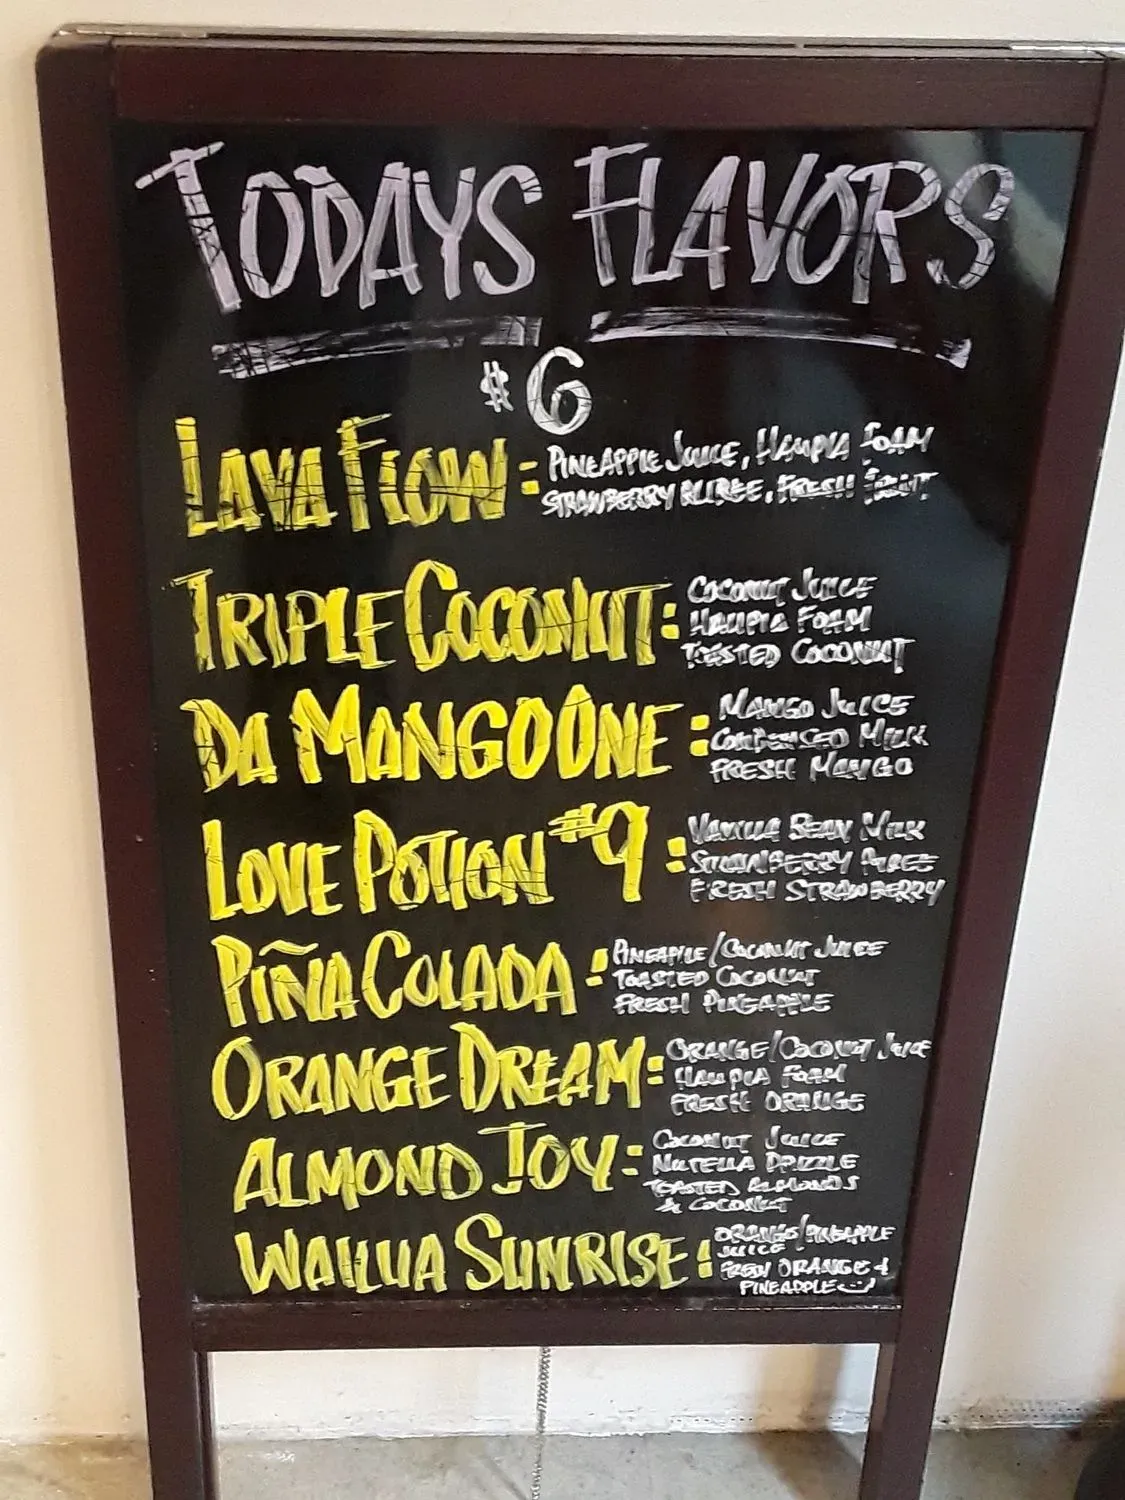 TODAYS FLAVORS
$6
LAVA FLOW: PINEAPPLE JUICE, HAUPIA FOAM
STRAWBERRY PUREE, FRESH FRUIT
TRIPLE COCONUT: COCONUT JUICE
HAUPIA FOAM
TOASTED COCONUT
DA MANGO ONE: MANGO JUICE
CONDENSED MILK
FRESH MANGO
LOVE POTION #9: VANILLA BEAN MILK
STRAWBERRY PUREE
FRESH STRAWBERRY
PIÑA COLADA: PINEAPPLE/COCONUT JUICE
TOASTED COCONUT
FRESH PINEAPPLE
ORANGE DREAM: ORANGE/COCONUT JUICE
HAUPIA FOAM
FRESH ORANGE
ALMOND JOY: COCONUT JUICE
NUTELLA DRIZZLE
TOASTED ALMONDS
& COCONUT
WAILUA SUNRISE: ORANGE/PINEAPPLE
JUICE
FRESH ORANGE +
PINEAPPLE